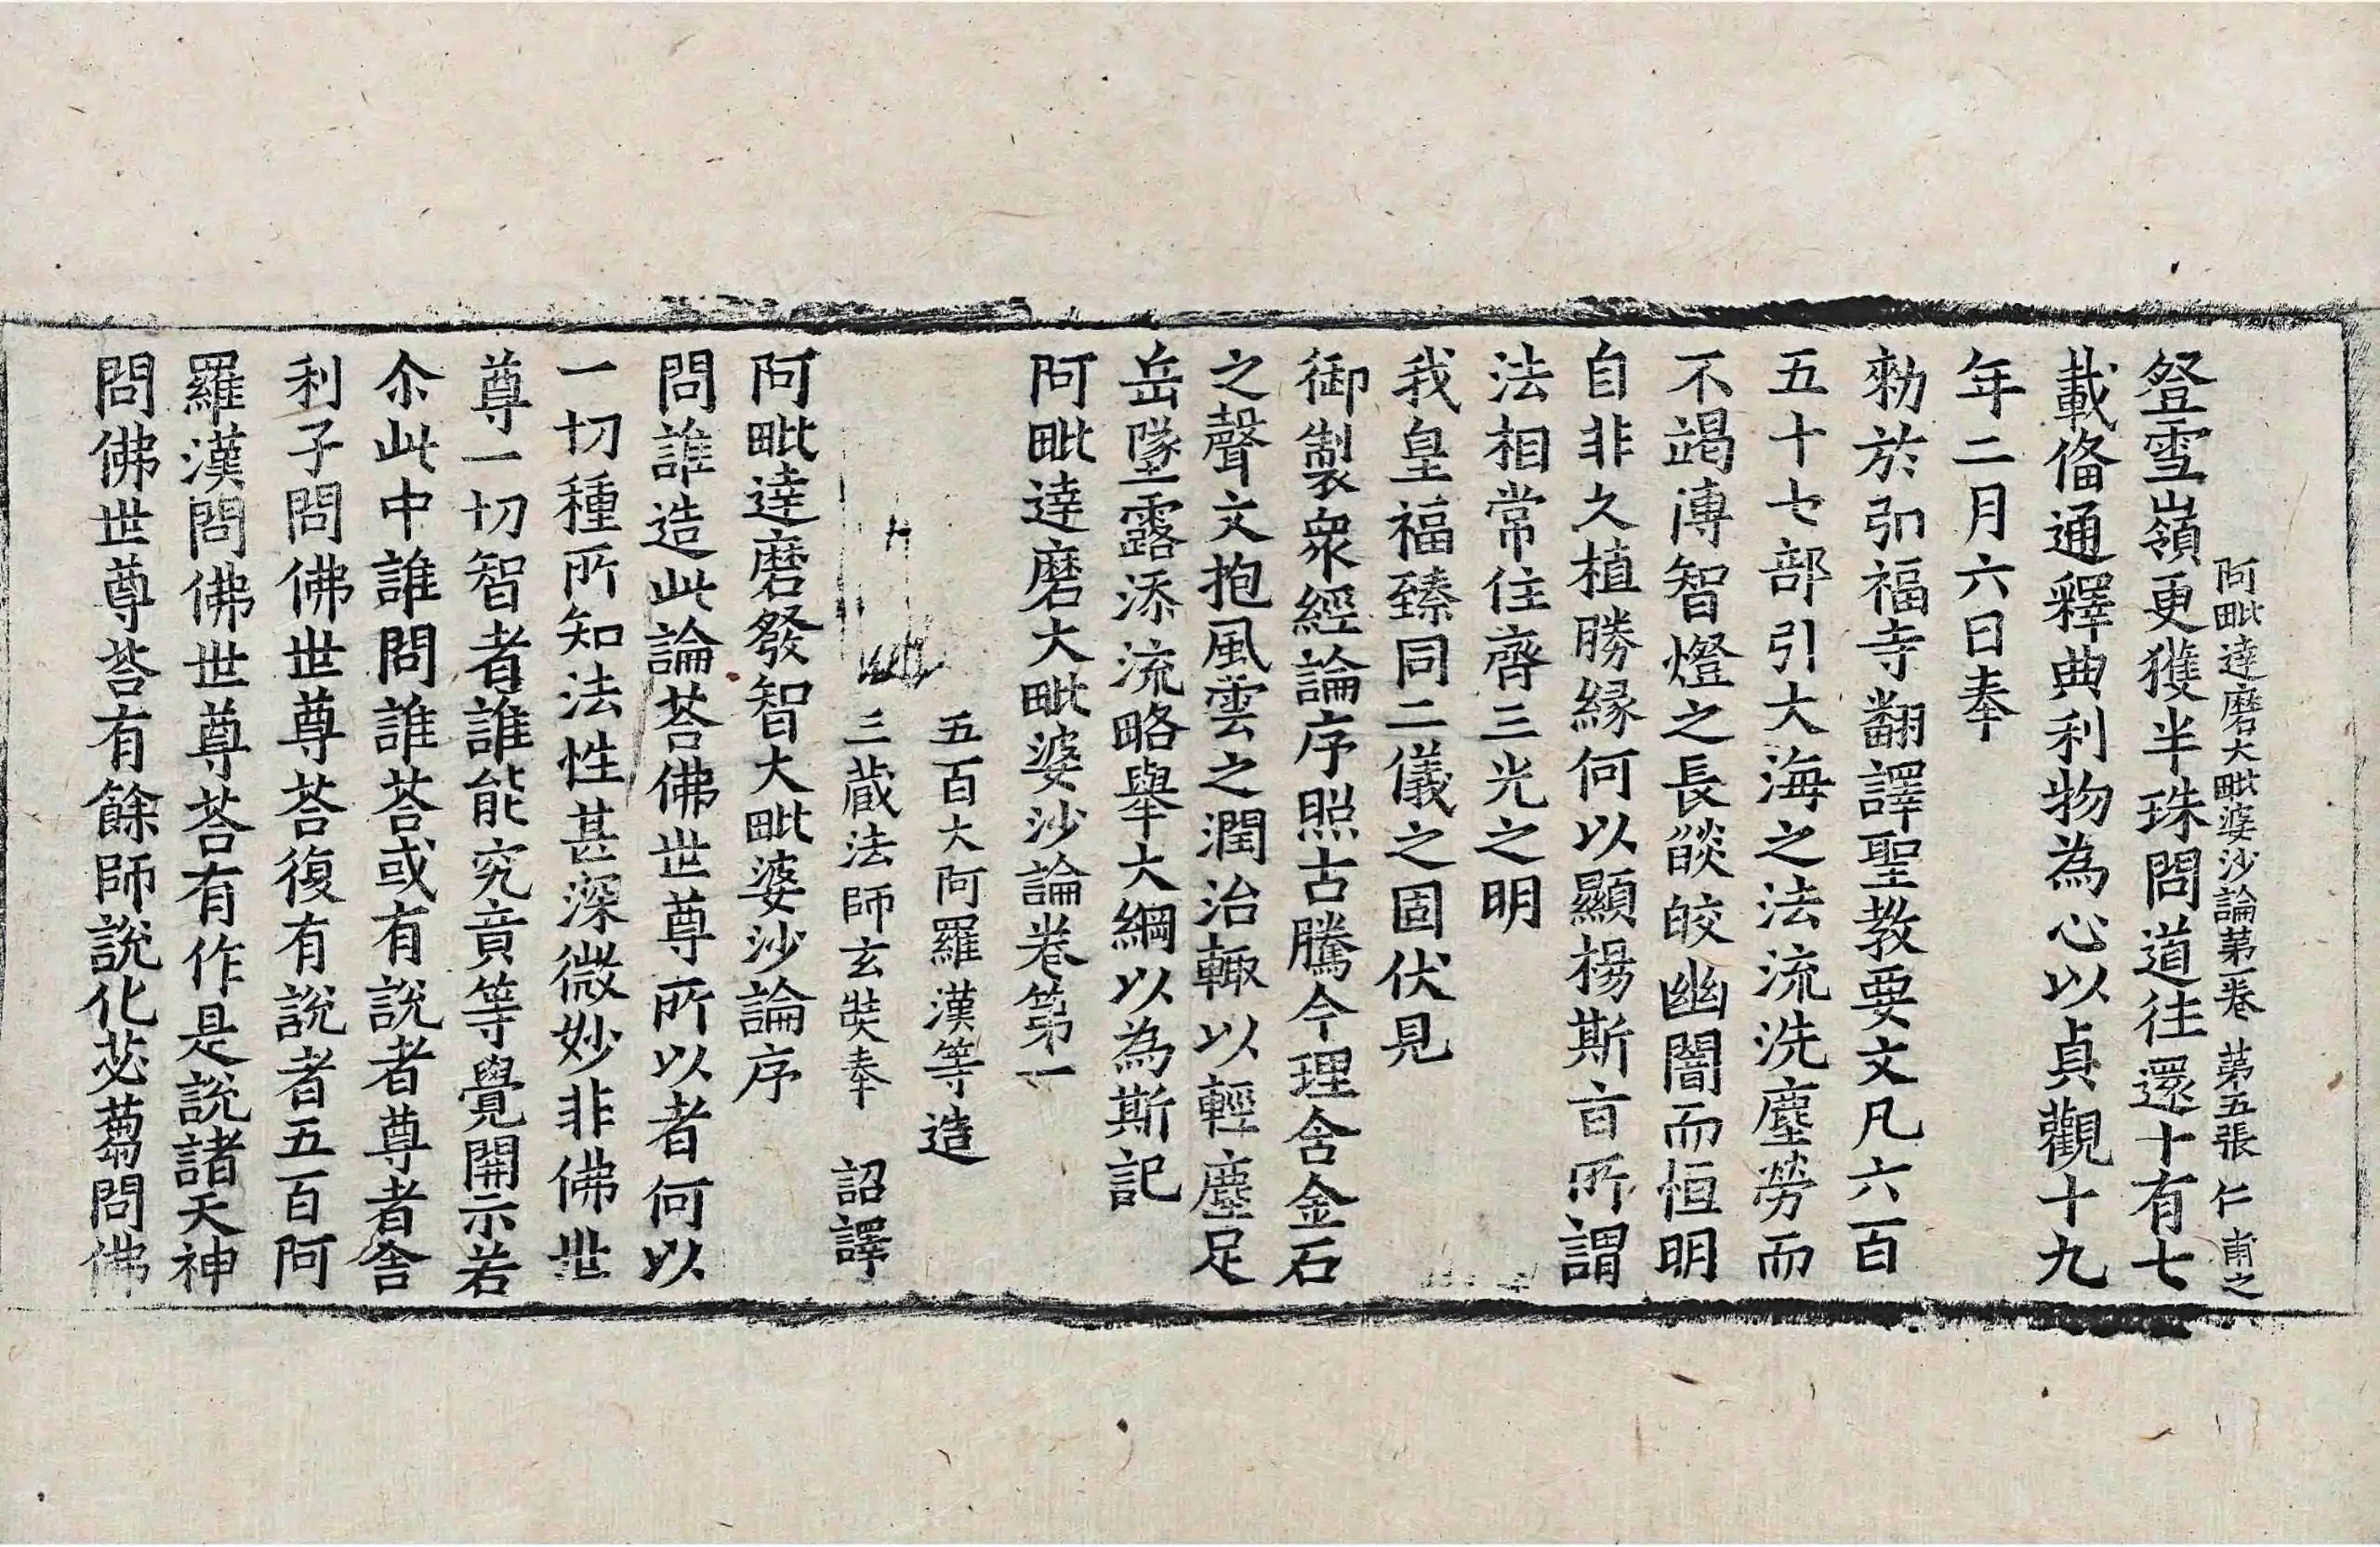 阿毗達磨大毗婆沙論第一卷 第五張 仁 甫之
登雪嶺更獲半珠問道往還十有七
載俻通釋典利物為心以貞觀十九
年二月六日奉
勑於弘福寺翻譯聖教要文凡六百
五十七部引大海之法流洗塵勞而
不竭傳智燈之長燄皎幽闇而恒明
自非久植勝緣何以顯揚斯旨所謂
法相常住齊三光之明
我皇福臻同二儀之固伏見
御製衆經論序照古騰今理含金石
之聲文抱風雲之潤治輙以輕塵足
岳墜露添流略舉大綱以為斯記
阿毗達磨大毗婆沙論卷第一
五百大阿羅漢等造
三蔵法師玄奘奉 詔譯
阿毗達磨發智大毗婆沙論序
問誰造此論荅佛世尊所以者何以
一切種所知法性甚深微妙非佛世
尊一切智者誰能究竟等覺開示若
尒此中誰問誰荅或有說者尊者舎
利子問佛世尊荅復有說者五百阿
羅漢問佛世尊荅有作是說諸天神
問佛世尊荅有餘師說化苾蒭問佛